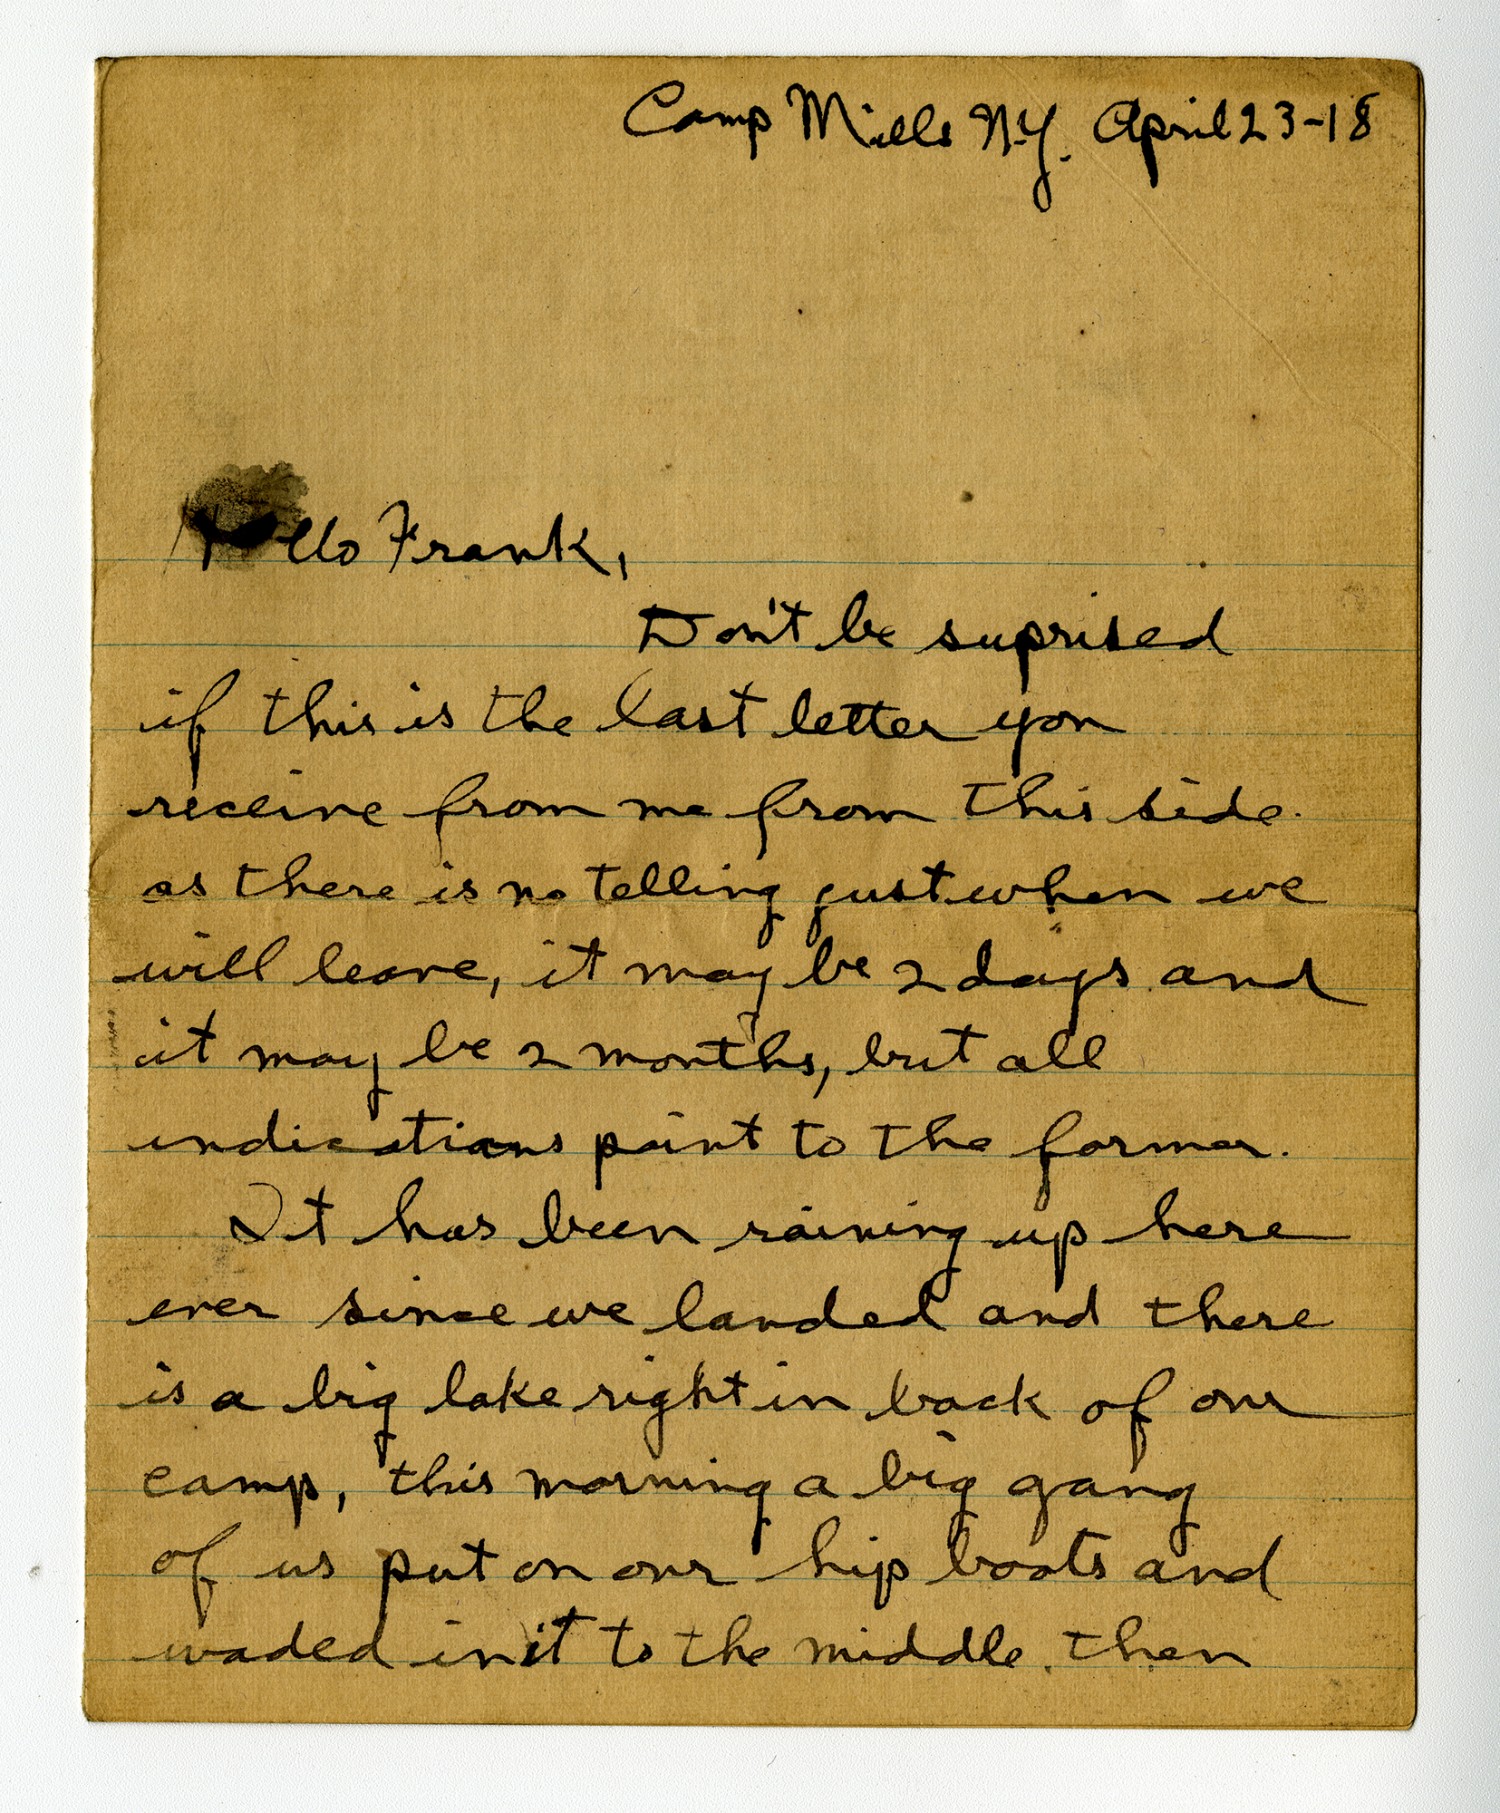 Camp Mills N.Y. April 23-18
Hello Frank,
Don't be suprised
if this is the last letter you
receive from me from this side.
as there is no telling just when we
will leave, it may be 2 days and
it may be 2 months, but all
indications point to the former.
It has been raining up here
ever since we landed and there
is a big lake right in back of our
camp, this morning a big gang
of us put on our hip boots and
waded in it to the middle. then